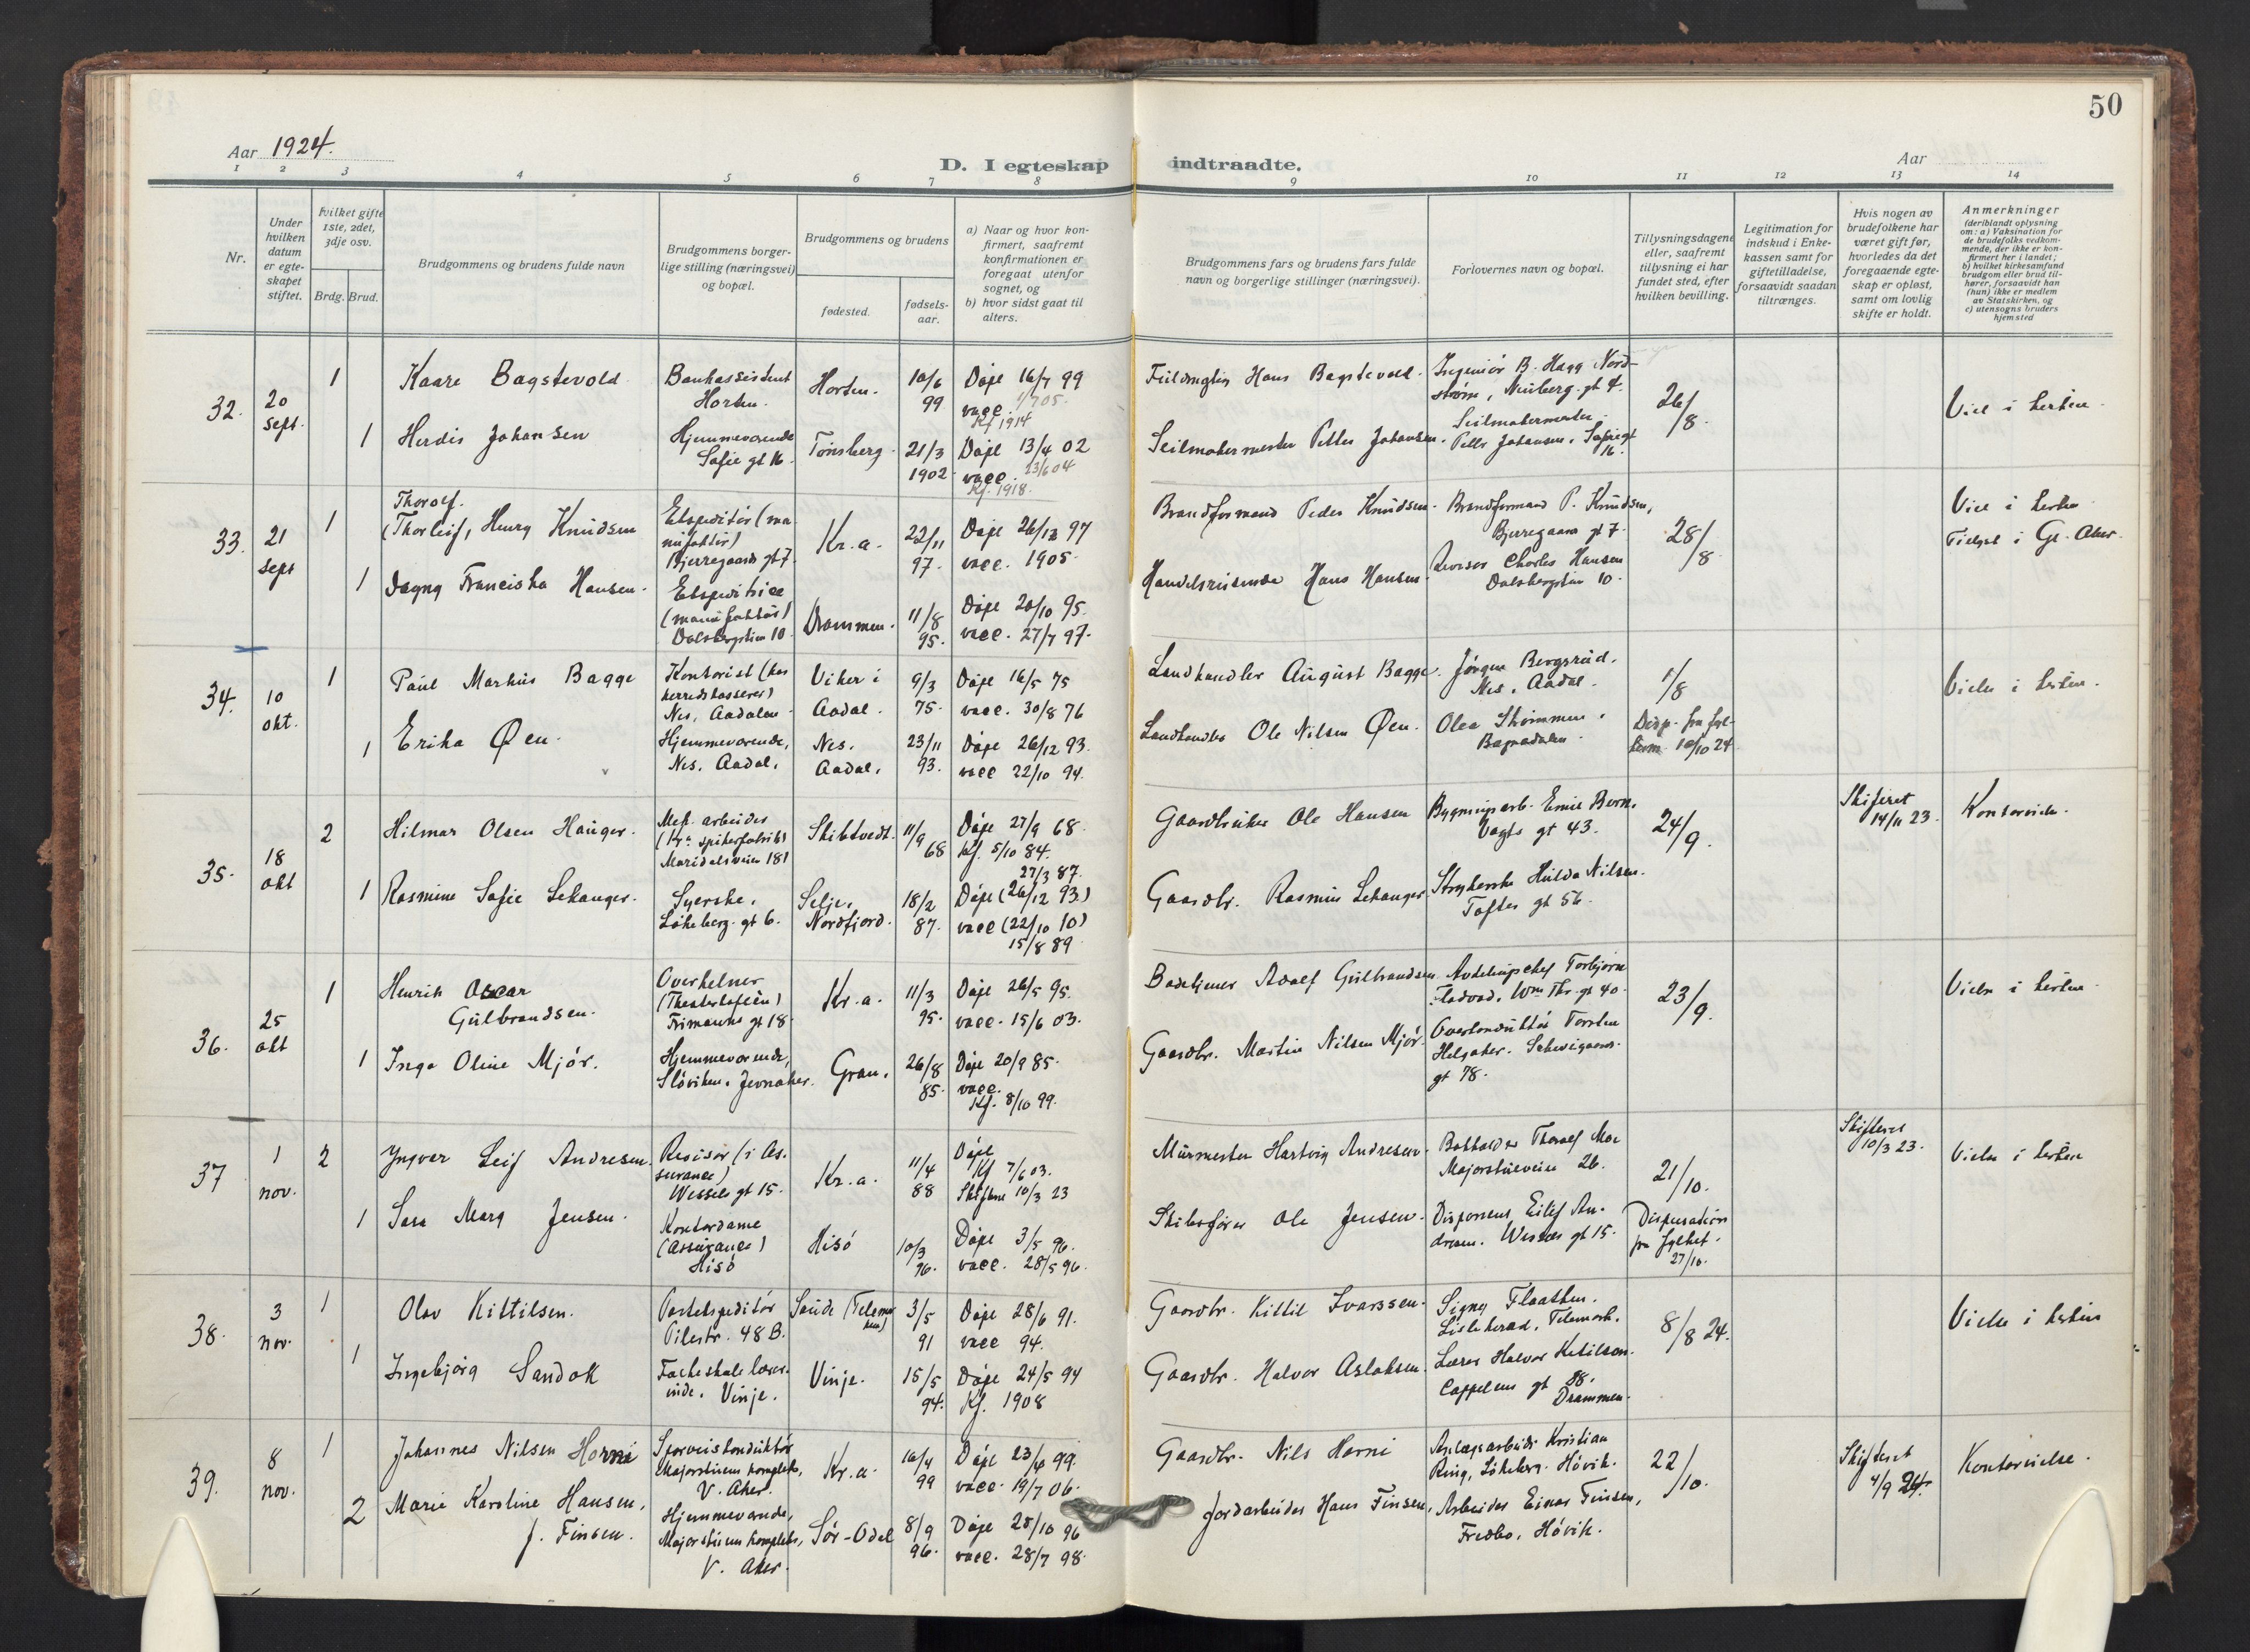 50
Aar 1924.
D. I egteskap indtraadte.
Aar
1 2 3 4 5 6 7 8 9 10 11 12 13 14
Nr.
Under hvilken datum er egteskapet stiftet.
hvilket gifte 1ste, 2det, 3dje osv.
Brdg. Brud.
Brudgommens og brudens fulde navn
Brudgommens borgerlige stilling (næringsvei) og bopæl.
Brudgommens og brudens
fødested.
fødselsaar.
a) Naar og hvor konfirmert, saafremt konfirmationen er foregaat utenfor sognet, og
b) hvor sidst gaat til alters.
Brudgommens fars og brudens fars fulde navn og borgerlige stillinger (næringsvei).
Forlovernes navn og bopæl.
Tillysningsdagene eller, saafremt tillysning ei har fundet sted, efter hvilken bevilling.
Legitimation for indskud i Enkekassen samt for giftetilladelse, forsaavidt saadan tiltrænges.
Hvis nogen av brudefolkene har været gift før, hvorledes da det foregaaende egteskap er opløst, samt om lovlig skifte er holdt.
Anmerkninger
(deriblandt oplysning om: a) Vaksination for de brudefolks vedkommende, der ikke er konfirmert her i landet; b) hvilket kirkesamfund brudgom eller brud tilhører, forsaavidt han (hun) ikke er medlem av Statskirken, og c) utensogns bruders hjemsted
32. 20 sept.
1 Kaare Bagstevold
Bankassistent
Horten.
Horten. 10/6 99
Døpt 16/7 99
vacc. 1/7 05.
Kf 1914
Hans Bagstevold.
Ingeniør B. Hagg Nordstrøm, Neuberg. gt 4.
26/8
Viel i kirken.
1 Herdis Johansen
Hjemmeværende
Sofie gt 16.
Tønsberg. 21/3 1902
Døpt 13/4 02
vacc. 23/6 04
Kf. 1918.
Seilmakermester Petter Johansen.
Seilmakermester
Petter Johansen, Sofiegt 16.
33. 21 sept
1 Thorolf.
(Thorleif, Henry Knudsen
Ekspeditør (manufaktur)
Bjerregaards gt 7.
Kr.a. 22/11 97.
Døpt 26/12 97
vacc. 1905.
Brandformand Peder Knudsen.
Brandformand P. Knudsen,
Bjerregaards gt 7.
28/8
Viel i kirken
Tillyst i Gl. Aker.
1 Dagny Franciska Hansen.
Ekspeditrice
(manufaktur)
Dalsbergstien 10.
Drammen. 11/8 95.
Døpt 20/10 95.
vacc. 27/7 97.
Handelsreisende Hans Hansen.
Revisor Charles Hansen
Dalsbergstien 10.
34. 10 okt.
1 Paul Markus Bagge
Kontorist (hos
herredskasserer)
Nes, Aadalen
Viker i
Aadal. 9/3 75.
Døpt 16/5 75
vacc. 30/8 76
Landhandler August Bagge.
Jørgen Bergsrud.
Nes, Aadal.
1/8
Vielse i kirken.
1 Erika Øen.
Hjemmeværende,
Nes, Aadal.
Nes.
Aadal. 23/11 93.
Døpt 26/12 93.
vacc 22/10 94.
Landhandler Ole Nilsen Øen.
Olea Strømmen.
Bagnadalen.
Disp. fra fylkesm. 10/10 24
35. 18 okt
2 Hilmar Olsen Hauger.
Mek. arbeider
(Kr.a spikerfabrik)
Maridalsveien 181
Skibtvedt. 11/9 68
Døpt 27/9 68.
Kf. 5/10 84.
Gaardbruker Ole Hansen
Bygningsarb. Emil Bern.
Vogts gt 43.
24/9.
Skiftet 14/11 23.
Kontorvielse.
1 Rasmine Sofie Sekanger.
Syerske.
Løkeberg. gt 6.
Selje,
Nordfjord. 18/2 87.
27/3 87.
Døpt (26/12 93)
vacc (22/10 10)
15/8 89
Gaardbr. Rasmus Sekanger.
Strykerske Hulda Nilsen.
Toftes gt 56.
36. 25 okt
1 Henrik Oscar
Gulbrandsen.
Overkelner
(Theaterkaféen)
Frimanns gt 18.
Kr.a. 11/3 95.
Døpt 26/5 95.
vacc. 15/6 03.
Badetjener Adolf Gulbrandsen.
Avdelingschef Torbjørn
Fladvad. Wm Thr. gt 40.
23/9.
Vielse i kirken.
1 Inga Oline Mjør.
Hjemmeværende,
Sløviken, Jevnaker.
Gran. 26/8 85.
Døpt 20/9 85.
vacc.
Kf. 8/10 99.
Gaardbr. Martin Nilsen Mjør.
Overkonduktør Torsten
Helgaker. Schweigaards.
gt 78.
37 1 nov.
2 Yngvar Leif Andresen.
Revisor (i Assurance)
Wessels gt 15.
Kr.a. 11/4 88
Døpt
Kf 7/6 03.
Skiftet 10/3 23
Murmester Hartvig Andresen.
Bokholder Thoralf Moe
Majorstueveien 26.
21/10.
Skiftet 10/3 23.
Vielse i kirken
1 Sara Marg Jensen.
Kontordame
(Assurance)
Hisø
Hisø 10/3 96.
Døpt 3/5 96.
vacc. 28/5 96.
Skibsfører Ole Jensen.
Disponent Eilif Andresen. Wessels gt 15.
Dispensation
fra fylket.
27/10.
38. 3 nov.
1 Olav Kittilsen.
Postekspeditør
Pilestr. 48 B.
Saude (Telemarken) 3/5 91
Døpt 28/6 91.
vacc 94.
Gaardbr. Kittil Ivarssen.
Signy Flaathen.
Lisleherad, Telemark.
8/8 24.
Vielse i kirken
1 Ingebjørg Sandok
Folkeskolelærerinde. Vinje.
Vinje. 15/5 94.
Døpt 24/5 94
Kf. 1908
Gaardbr. Halvor Aslaksen.
Lærer Halvor Ketilson.
Cappelens gt 88.
Drammen.
39. 8 nov.
1 Johannes Nilsen Horni
Sporveiskonduktør
Majorstuens kompleks,
V. Aker.
Kr.a. 16/4 99
Døpt 23/4 99.
vacc. 19/7 06.
Gaardbr. Nils Horni
Anlægsarbeider Kristian
Ring, Løkeberg. Høvik.
22/10.
Skiftet 4/9 24.
Kontorvielse.
2 Marie Karoline Hansen,
f. Finsen.
Hjemmeværende,
Majorstuens kompleks,
V. Aker.
Sør-Odal 8/9 96.
Døpt 25/10 96
vacc. 28/7 98.
Jordarbeider Hans Finsen.
Arbeider Einar Finsen,
Fredbo, Høvik.